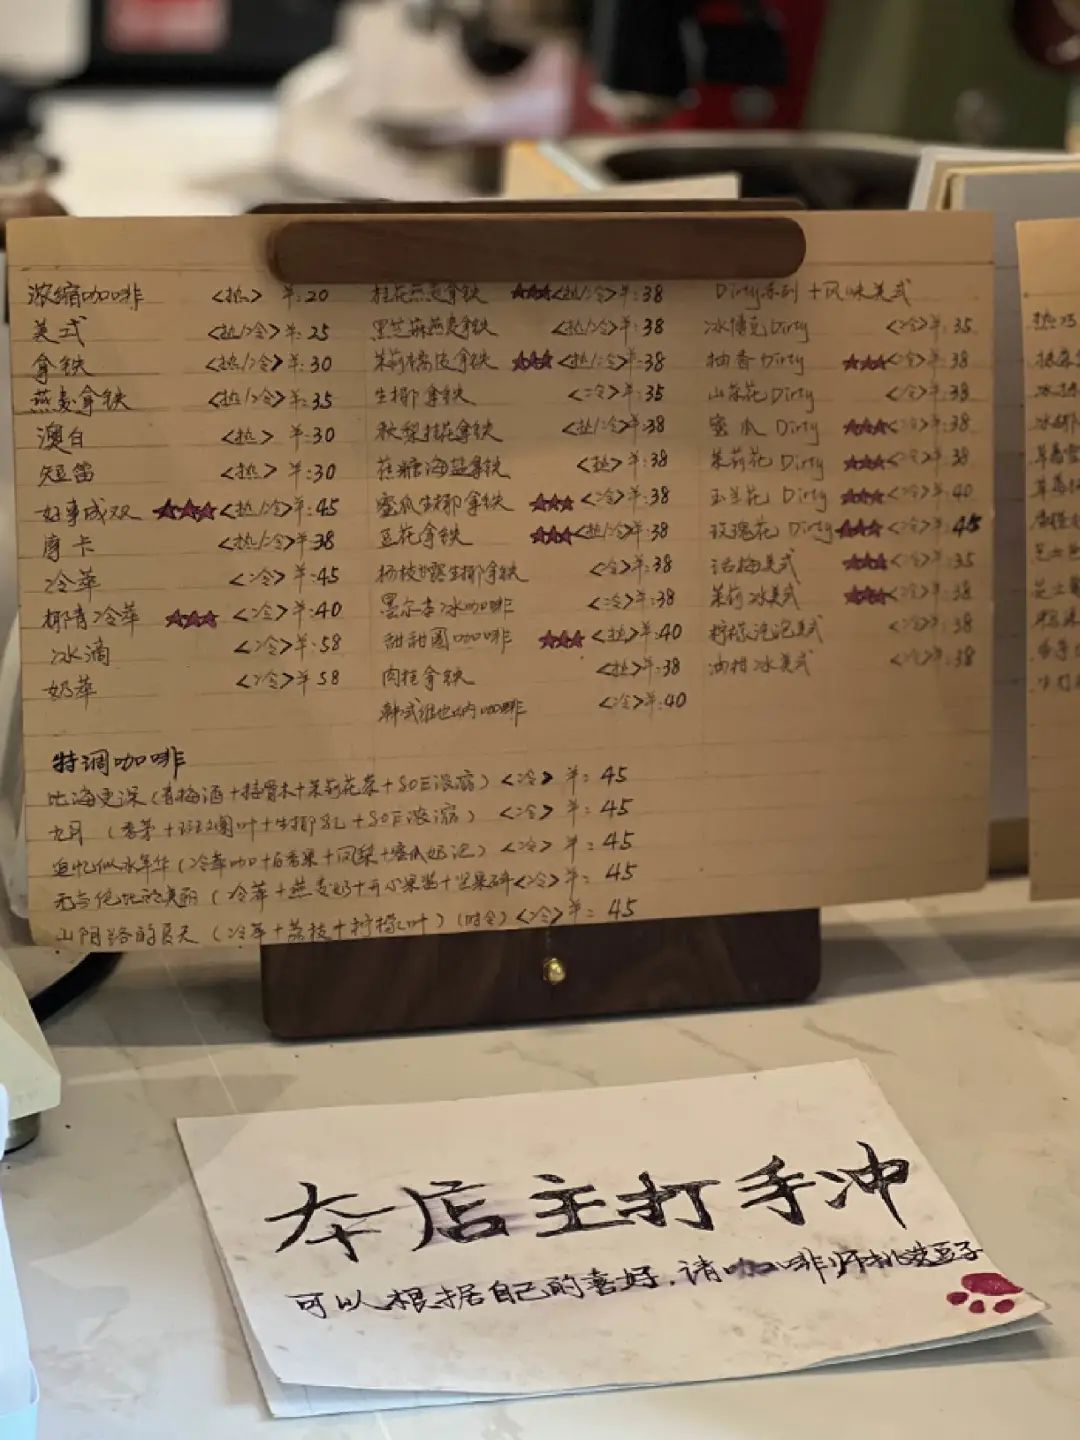 浓缩咖啡 <热> ¥:20
美式 <热/冷> ¥:25
拿铁 <热/冷> ¥:30
燕麦拿铁 <热/冷> ¥:35
澳白 <热> ¥:30
短笛 <热> ¥:30
好事成双 ★★★ <热/冷> ¥:45
摩卡 <热/冷> ¥:38
冷萃 <冷> ¥:45
椰青冷萃 ★★★ <冷> ¥:40
冰滴 <冷> ¥:58
奶萃 <冷> ¥58
桂花燕麦拿铁 ★★★ <热/冷> ¥:38
黑芝麻燕麦拿铁 <热/冷> ¥:38
茉莉橘皮拿铁 ★★★ <热/冷> ¥:38
生椰拿铁 <冷> ¥:35
秋梨桂花拿铁 <热/冷> ¥:38
蔗糖海盐拿铁 <热> ¥:38
蜜瓜生椰拿铁 ★★★ <冷> ¥:38
豆花拿铁 ★★★ <热/冷> ¥:38
杨枝甘露生椰拿铁 <冷> ¥:38
墨尔本冰咖啡 <冷> ¥:38
甜甜圈咖啡 ★★★ <热> ¥:40
肉桂拿铁 <热> ¥:38
韩式维也纳咖啡 <冷> ¥:40
Dirty系列+风味美式
冰博克Dirty <冷> ¥:35
柚香Dirty ★★★ <冷> ¥:38
山茶花Dirty <冷> ¥:38
蜜瓜 Dirty ★★★ <冷> ¥:38
茉莉花 Dirty ★★★ <冷> ¥:38
玉兰花 Dirty ★★★ <冷> ¥:40
玫瑰花 Dirty ★★★ <冷> ¥:45
话梅美式 ★★★ <冷> ¥:35
茉莉冰美式 ★★★ <冷> ¥:38
柠檬泡泡美式 <冷> ¥:38
油柑冰美式 <冷> ¥:38
特调咖啡
比海更深(青梅酒+接骨木+茉莉花茶+SOE浓缩) <冷> ¥: 45
九月 (香茅+斑斓叶+生椰乳+SOE浓缩) <冷> ¥: 45
追忆似水年华(冷萃咖+百香果+凤梨+蜜瓜奶泡) <冷> ¥: 45
无与伦比的美丽(冷萃+燕麦奶+开心果酱+坚果碎<冷> ¥: 45
山阴路的夏天(冷萃+荔枝+柠檬叶)(时令)<冷> ¥: 45
本店主打手冲
可以根据自己的喜好,请咖啡师挑选豆子